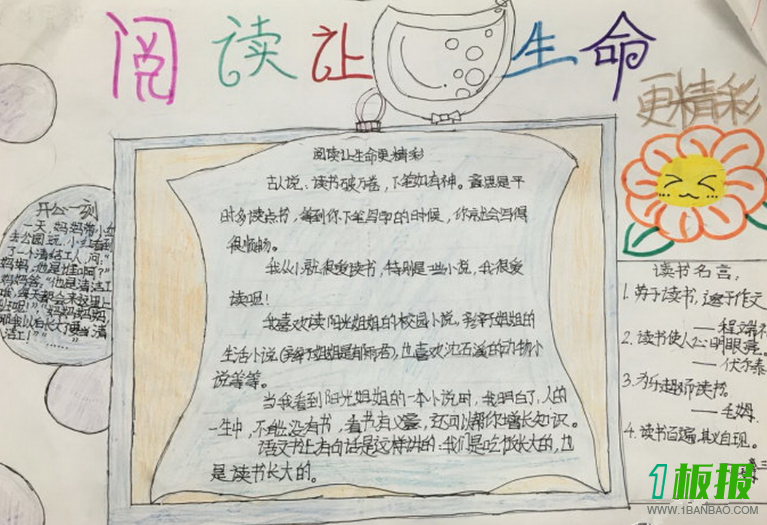 阅读让生命
更精彩
阅读让生命更精彩
古人说、读书破万卷，下笔如有神。意思是平
时多读点书，等到你下笔写字的时候，你就会写得
很顺畅。
我从小就很爱读书，特别是一些小说，我很爱
读呢！
我喜欢读阳光姐姐的校园小说。姐姐的
生活小说，也喜欢沈石溪的动物小
说等等。
当我看到阳光姐姐的一本小说时，我明白了，人的
一生中，不能没有书，看书有义意，还可以帮你增长知识。
语文书上有句话是这样讲的：我们是吃饭长大的，也
是读书长大的。
开心一刻
一天，妈妈带小红
去公园玩，小红看到
了一个清洁工人，问：“
妈妈，他是谁啊？”
妈妈答，“他是清洁工
读书名言，
1. 劳于读书，逸于作文
——程端礼
2. 读书使人心明眼亮。
——伏尔泰
3.
——毛姆.
4. 读书百遍，其义自现。
1板报
WWW.1BANBAO.COM